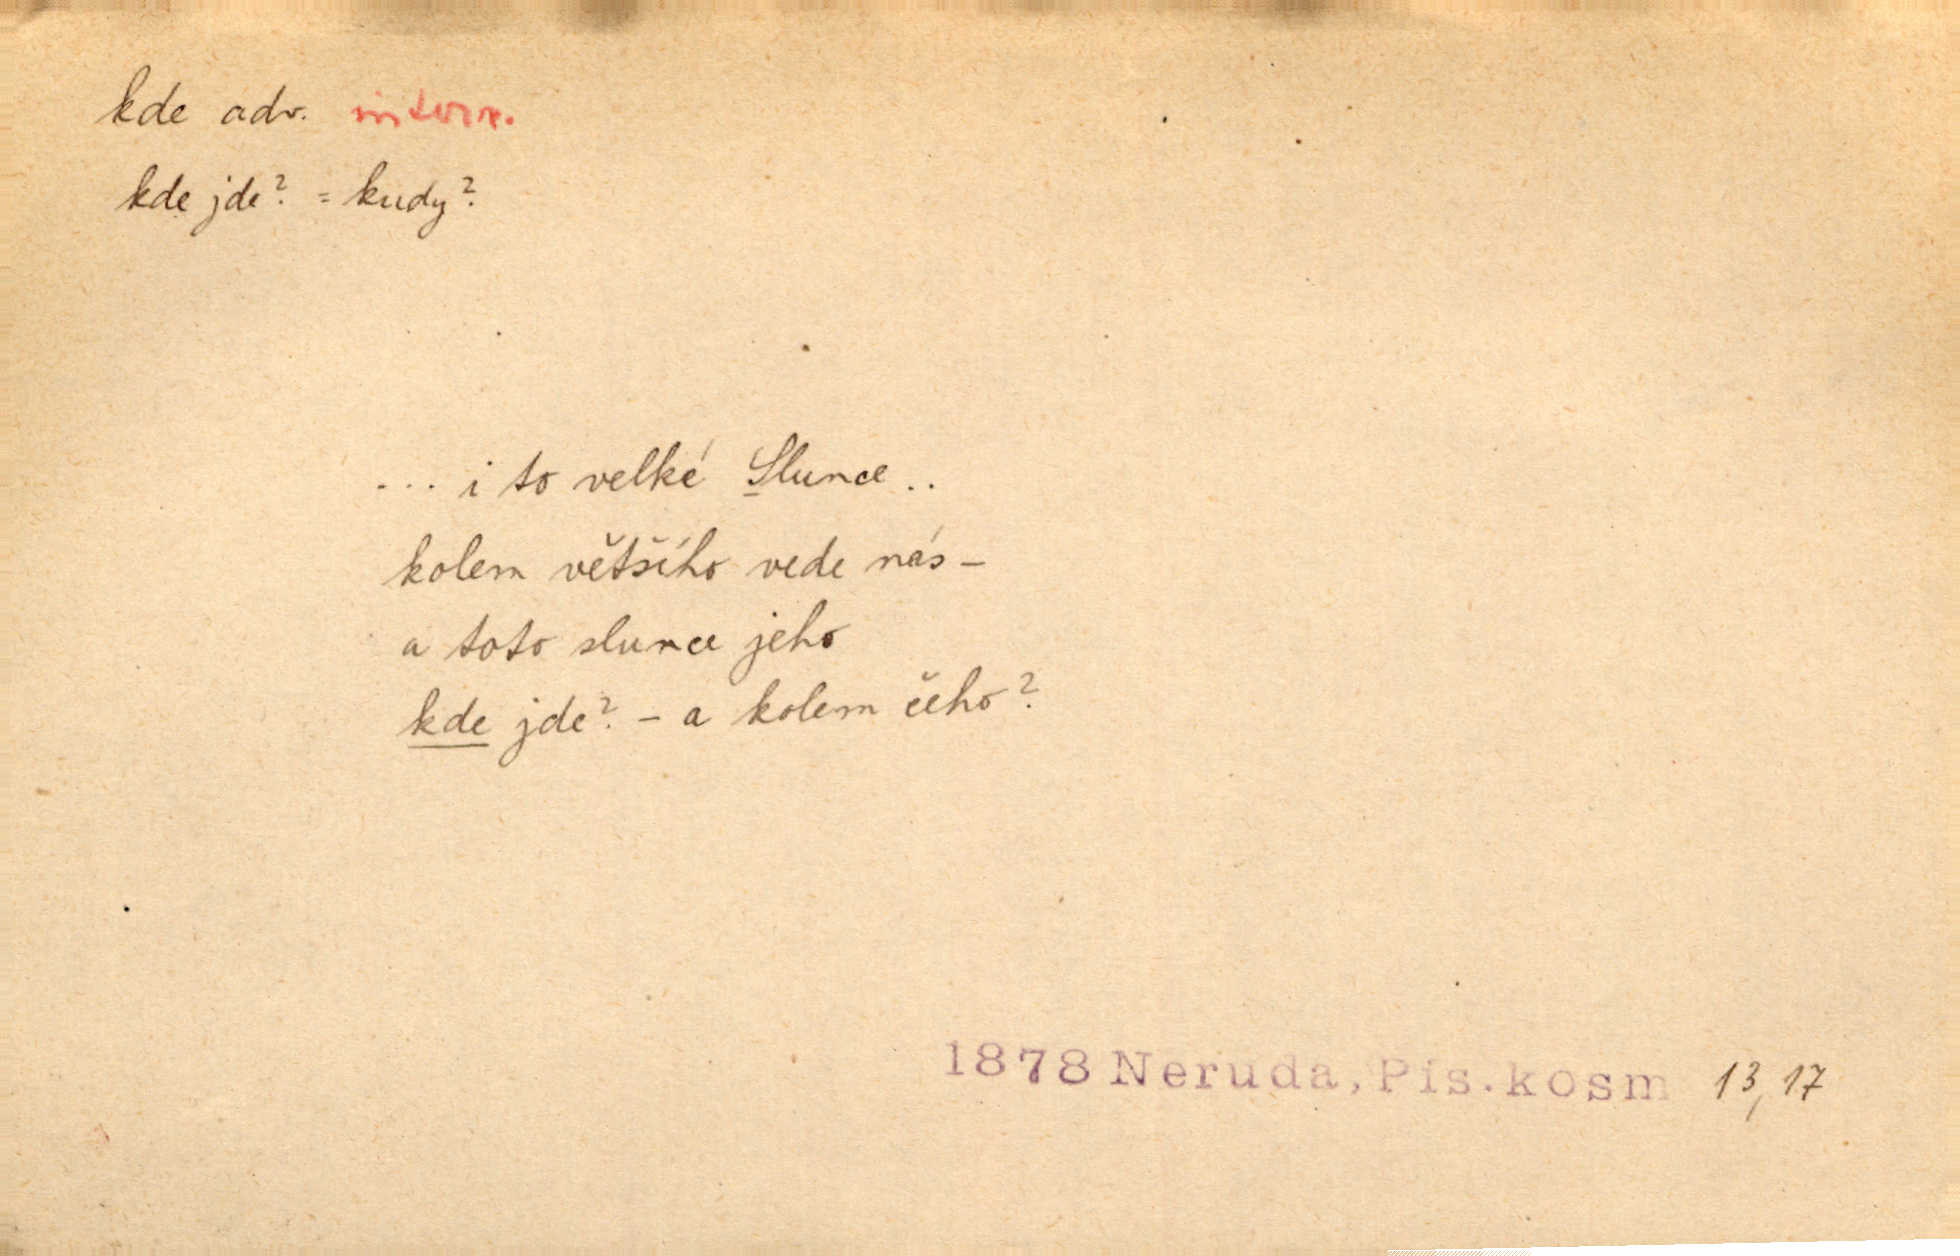 kde adv. interr.
kde jde? = kudy?
... i to velké Slunce ..
kolem většího vede nás –
a toto slunce jeho
kde jde? – a kolem čeho?
1878 Neruda, Pís. kosm 13, 17